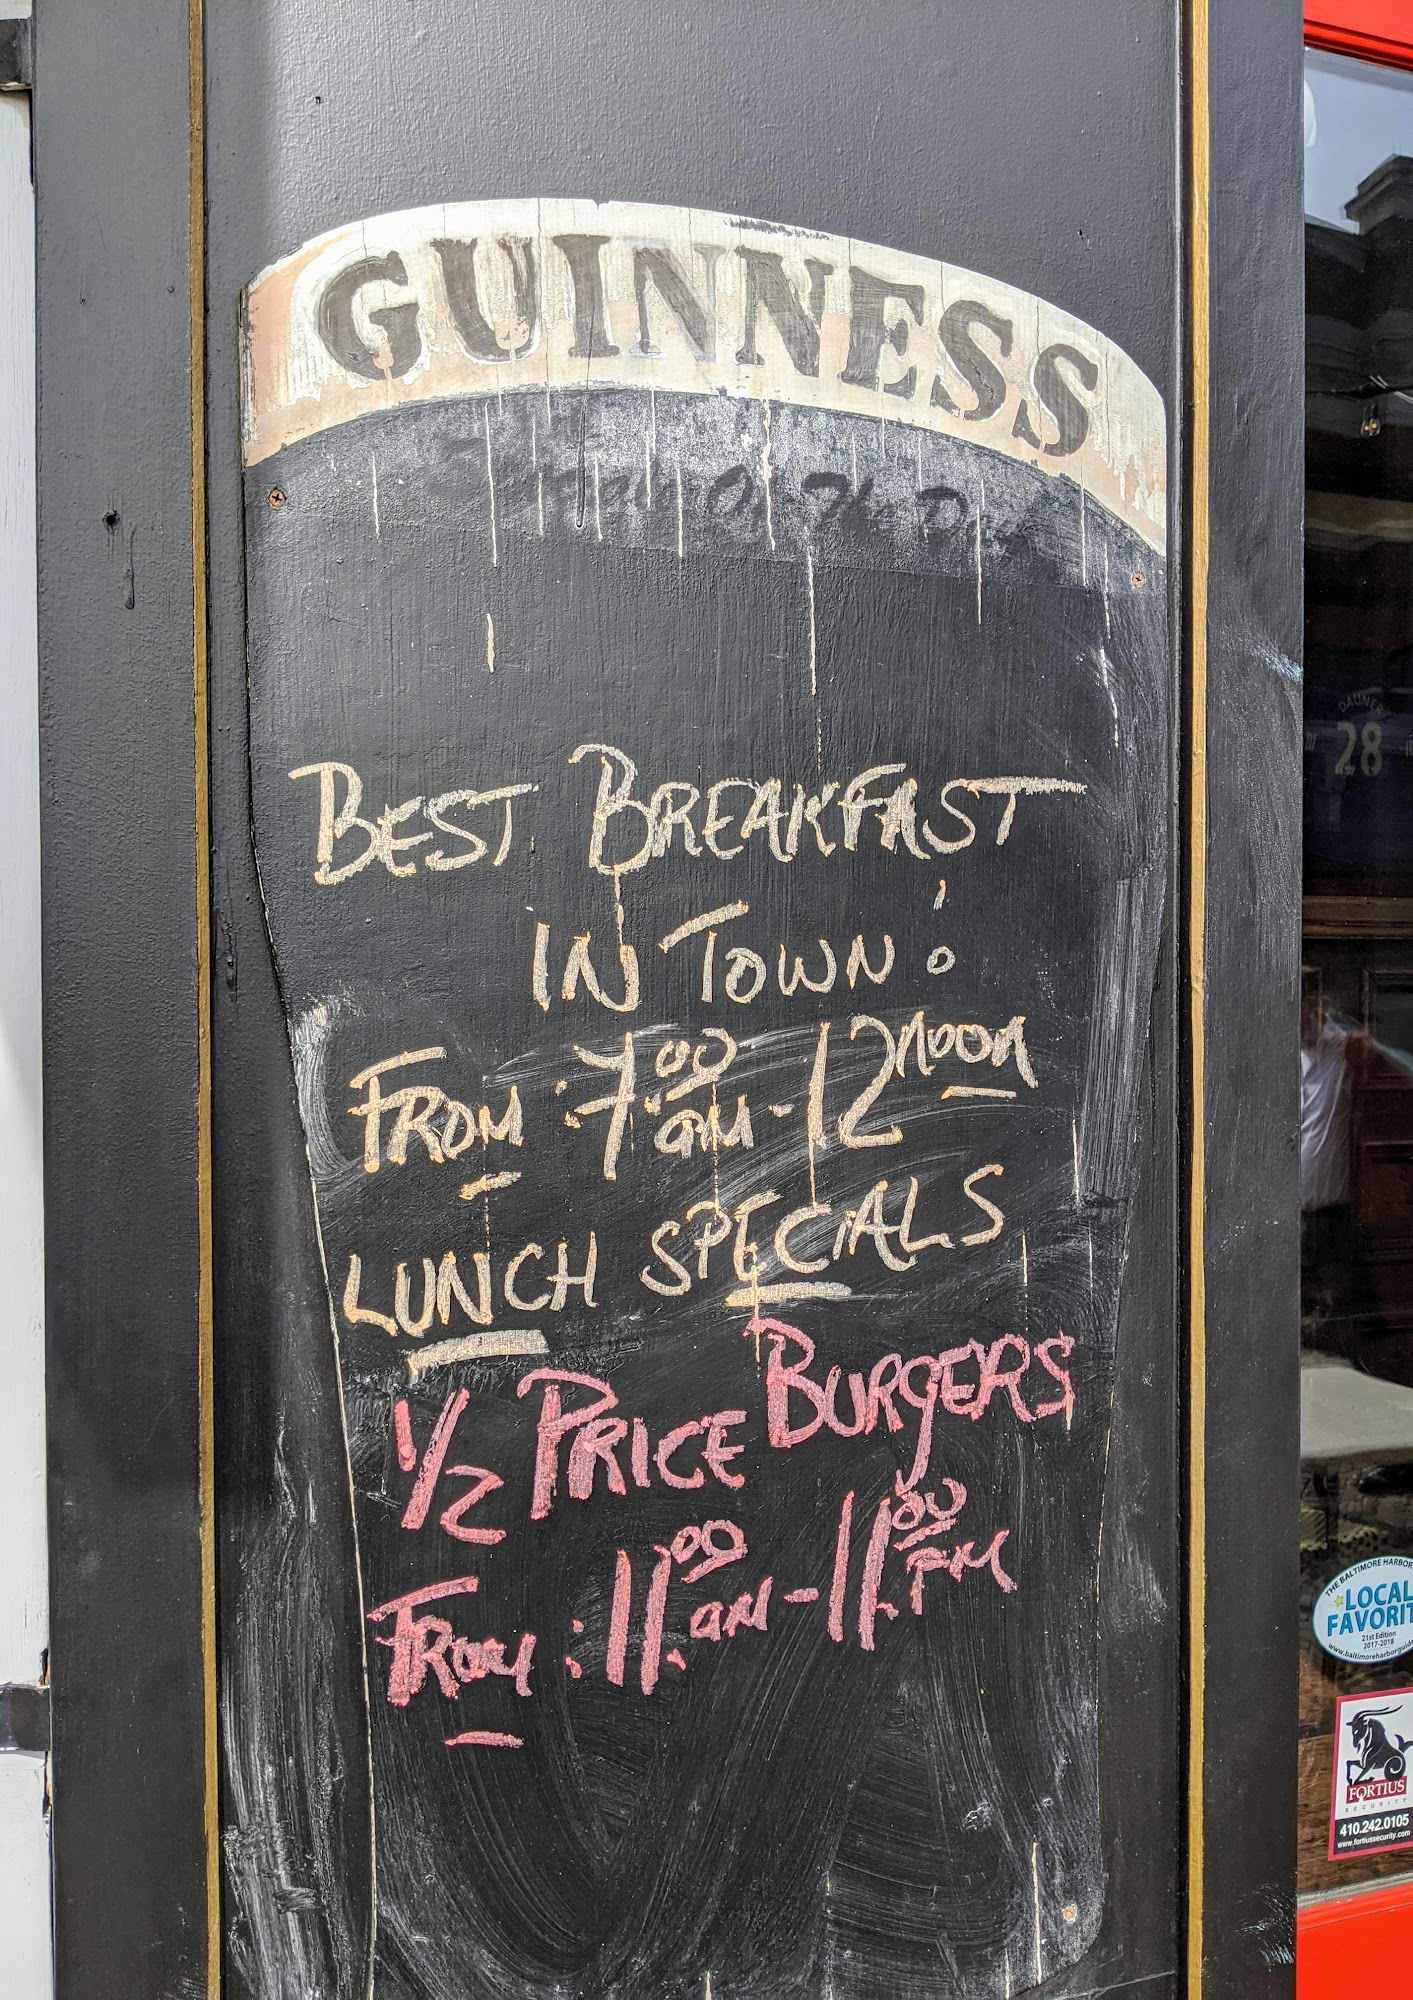 GUINNESS
Of The Day
BEST BREAKFAST
IN TOWN!
FROM :7.00 AM - 12 NOON
LUNCH SPECIALS
1/2 PRICE BURGERS
FROM : 11.00 AM - 11.00 PM
DAUNER
28
THE BALTIMORE HARBOR
LOCAL
FAVORIT
21st Edition
2017-2018
www.baltimoreharborguide
FORTIUS
SECURITY
410.242.0105
www.fortiussecurity.com